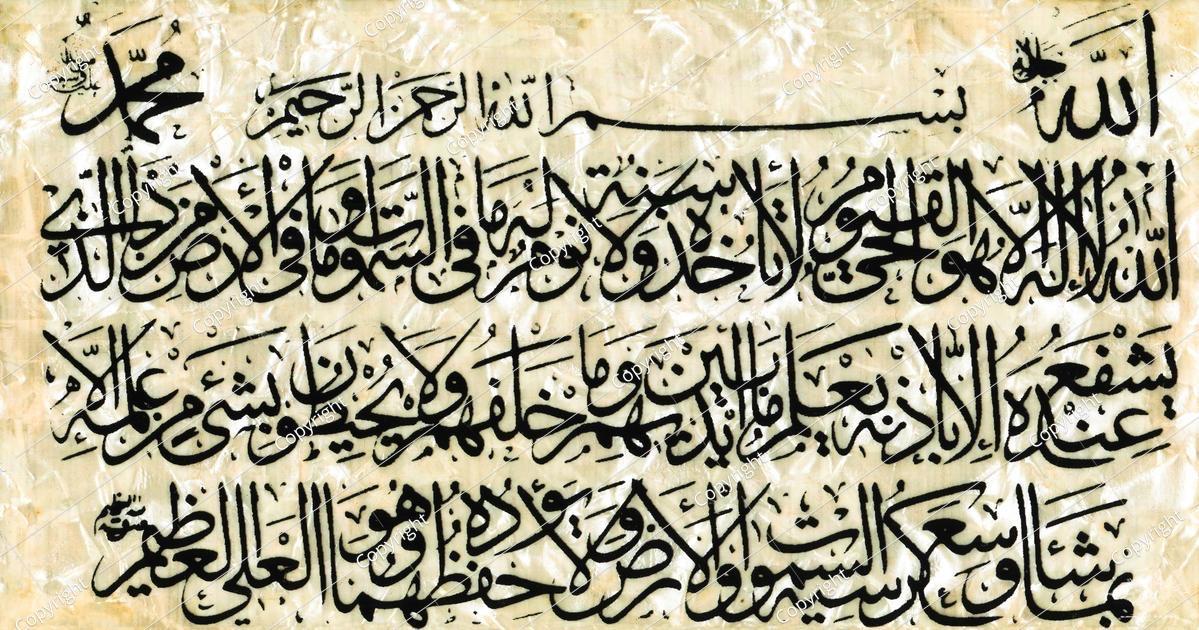 الله جل جلاله بسم الله الرحمن الرحيم محمد
الله لا إله إلا هو الحي القيوم لا تأخذه سنة ولا نوم له ما في السموات وما في الأرض من ذا الذي
يشفع عنده إلا بإذنه يعلم ما بين أيديهم وما خلفهم ولا يحيطون بشيء من علمه إلا
بما شاء وسع كرسيه السموات والأرض ولا يؤده حفظهما وهو العلي العظيم
Copyright